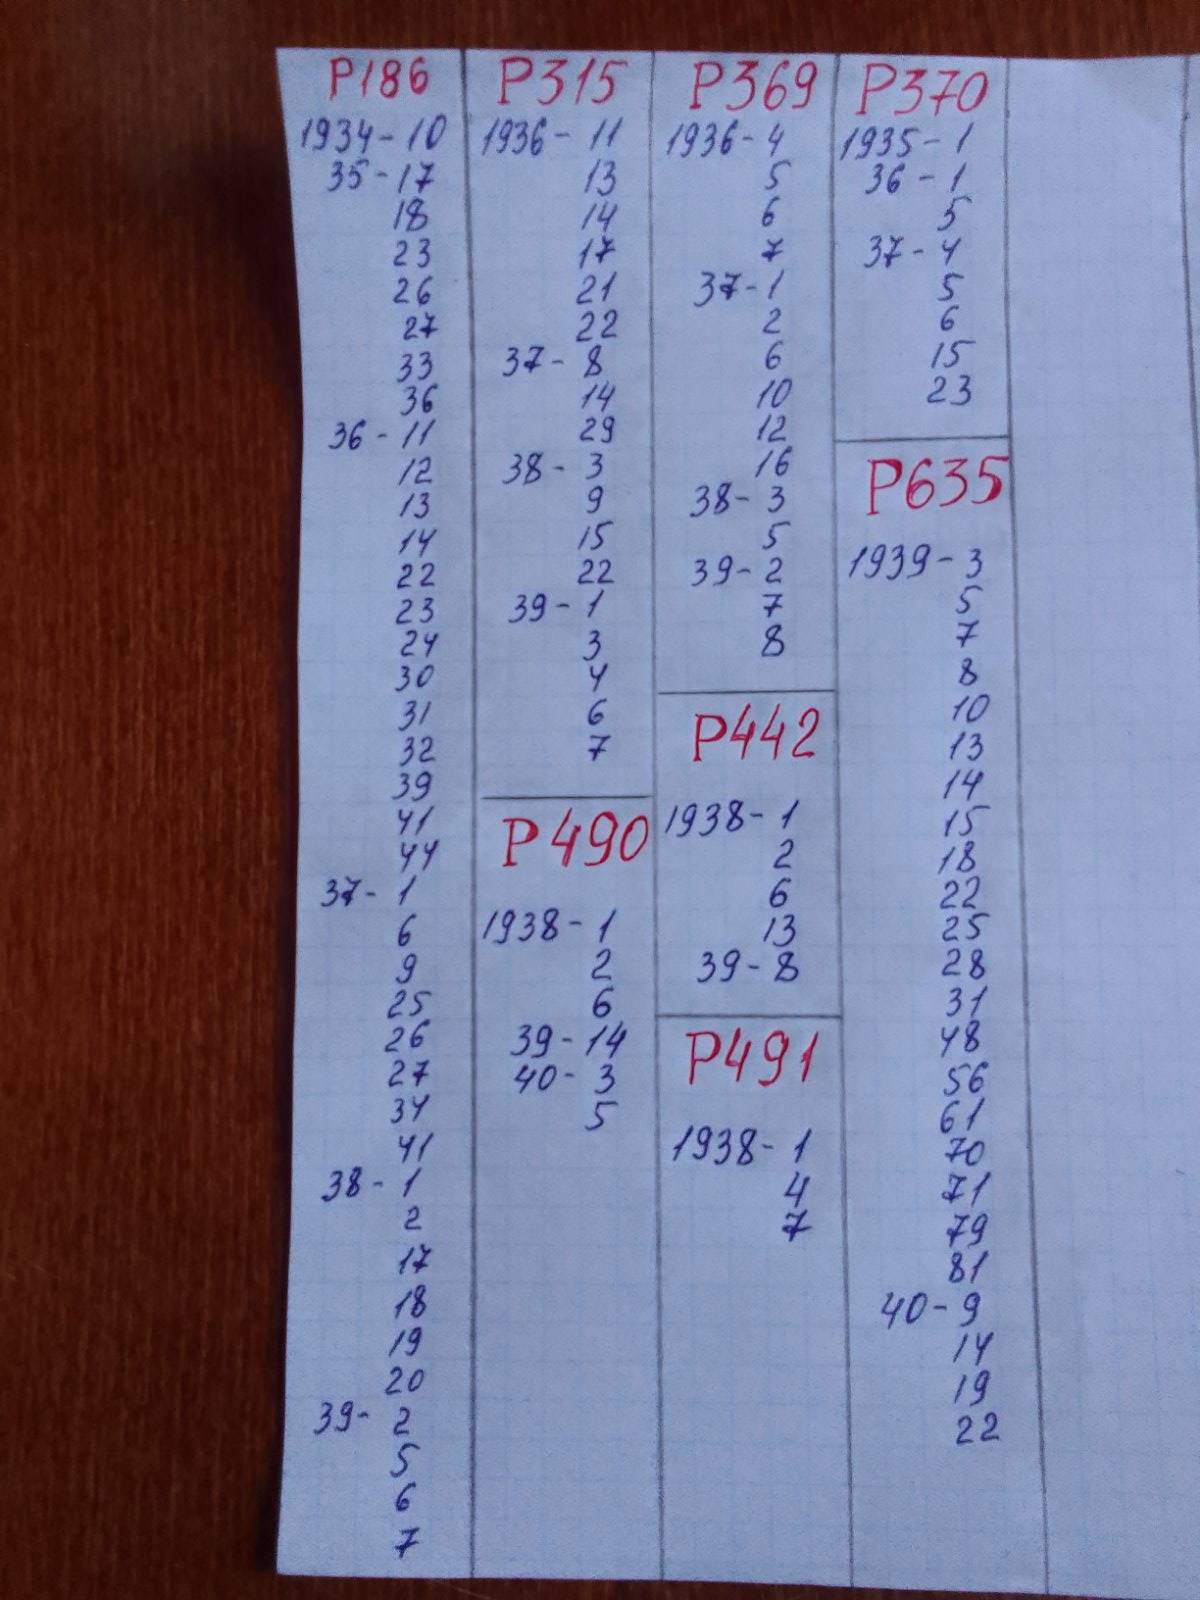 Р186
1934-10
35-17
18
23
26
27
33
36
36-11
12
13
14
22
23
24
30
31
32
39
41
44
37-1
6
9
25
26
27
34
41
38-1
2
17
18
19
20
39-2
5
6
7
Р315
1936-11
13
14
17
21
22
37-8
14
29
38-3
9
15
22
39-1
3
4
6
7
Р490
1938-1
2
6
39-14
40-3
5
Р369
1936-4
5
6
7
37-1
2
6
10
12
16
38-3
5
39-2
7
8
Р442
1938-1
2
6
13
39-8
Р491
1938-1
4
7
Р370
1935-1
36-1
5
37-4
5
6
15
23
Р635
1939-3
5
7
8
10
13
14
15
18
22
25
28
31
48
56
61
70
71
79
81
40-9
14
19
22